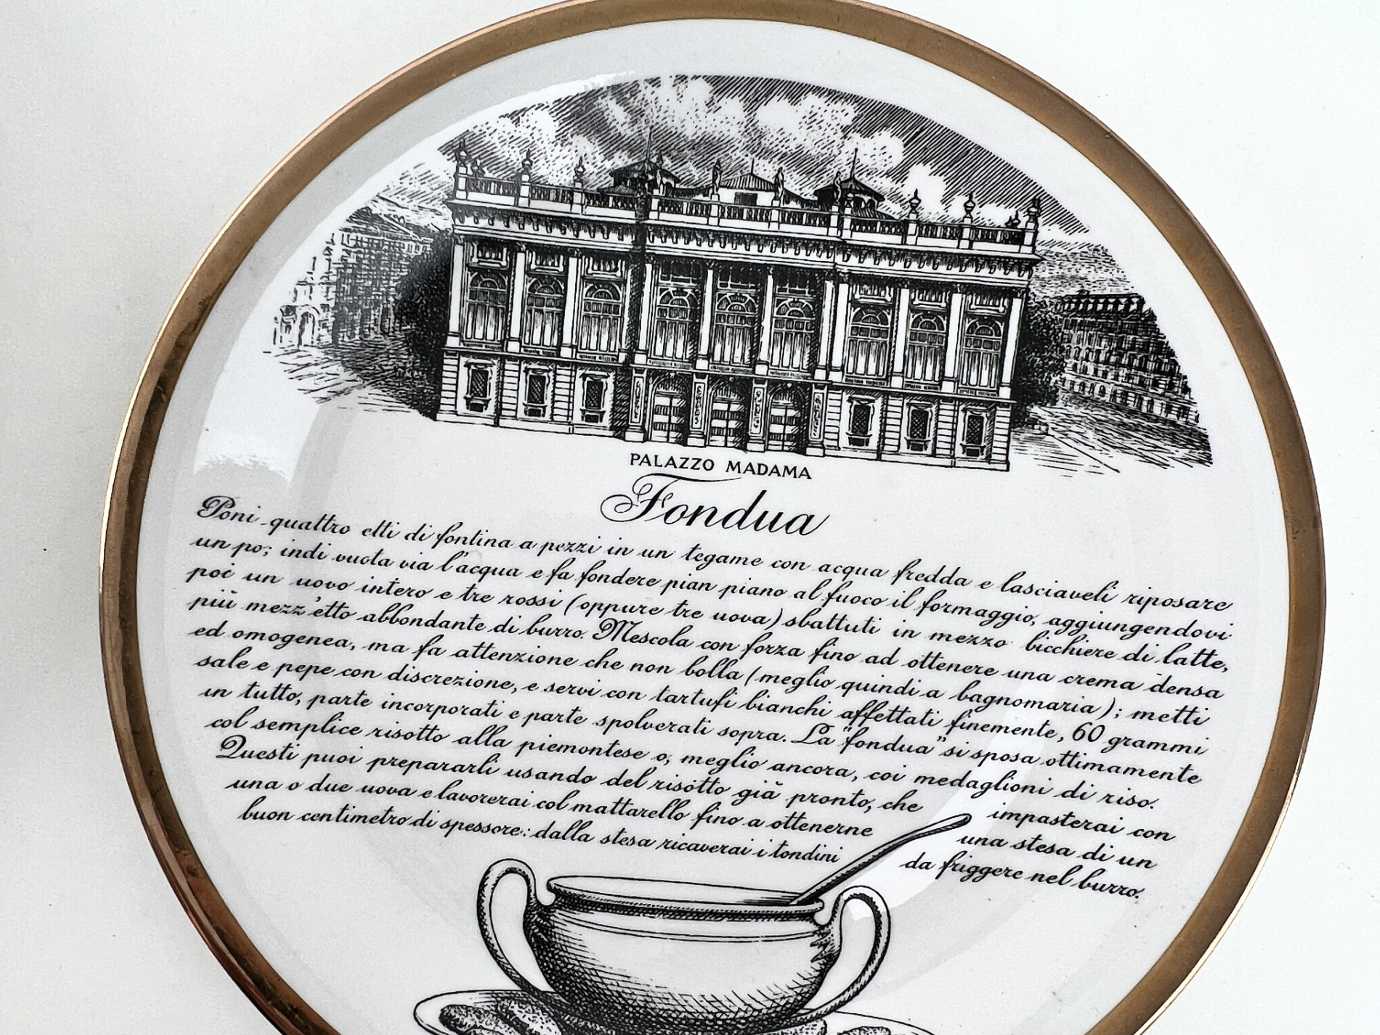 PALAZZO MADAMA
Fondua
Poni quattro etti di fontina a pezzi in un tegame con acqua fredda e lasciaveli riposare
un po'; indi vuota via l'acqua e fa fondere pian piano al fuoco il formaggio, aggiungendovi
poi un uovo intero e tre rossi (oppure tre uova) sbattuti in mezzo bicchiere di latte,
più mezz'etto abbondante di burro. Mescola con forza fino ad ottenere una crema densa
ed omogenea, ma fa attenzione che non bolla (meglio quindi a bagnomaria); metti
sale e pepe con discrezione, e servi con tartufi bianchi affettati finemente, 60 grammi
in tutto, parte incorporati e parte spolverati sopra. La "fondua" si sposa ottimamente
col semplice risotto alla piemontese o, meglio ancora, coi medaglioni di riso.
Questi puoi prepararli usando del risotto già pronto, che impasterai con
una o due uova e lavorerai col mattarello fino a ottenerne una stesa di un
buon centimetro di spessore: dalla stesa ricaverai i tondini da friggere nel burro.